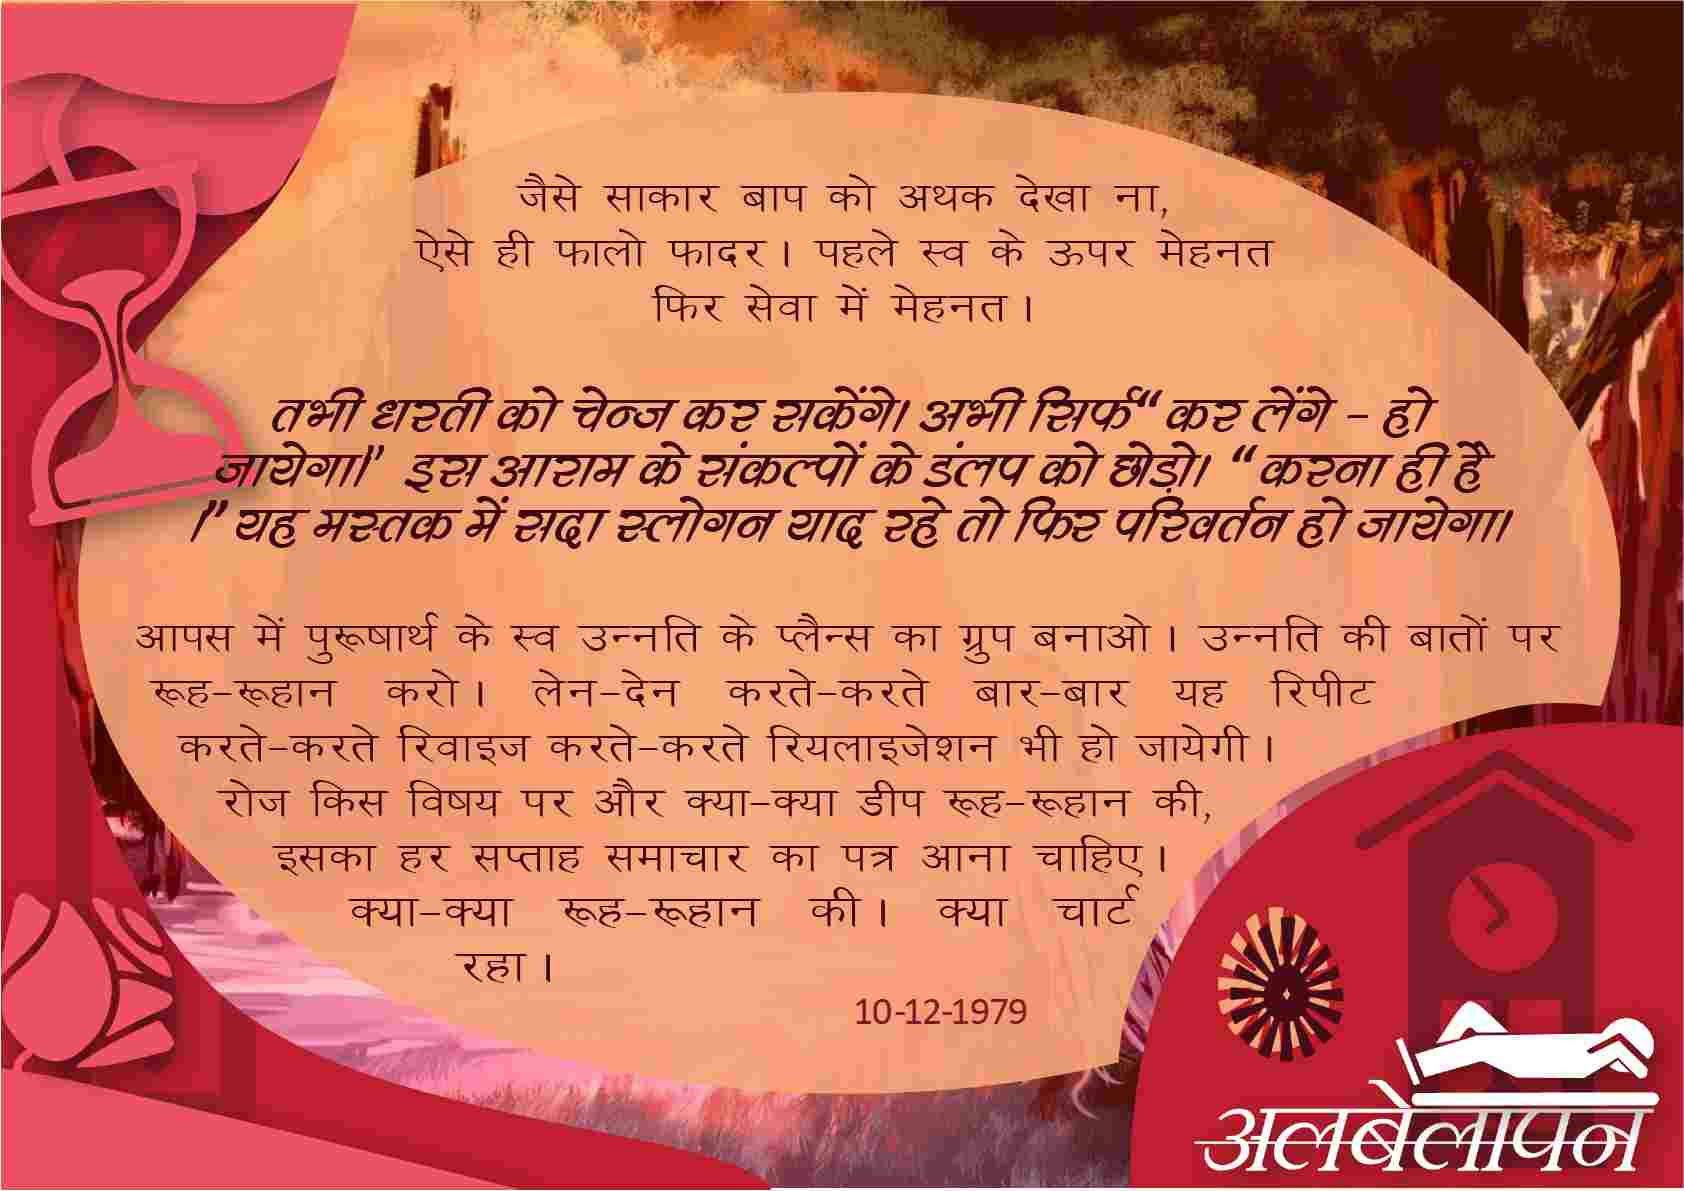 जैसे साकार बाप को अथक देखा ना,
ऐसे ही फालो फादर। पहले स्व के ऊपर मेहनत
फिर सेवा में मेहनत।
तभी धरती को चेन्ज कर सकेंगे। अभी सिर्फ“ कर लेंगे - हो
जायेगा।” इस आराम के संकल्पों के डंलप को छोड़ो। “ करना ही है
।” यह मस्तक में सदा स्लोगन याद रहे तो फिर परिवर्तन हो जायेगा।
आपस में पुरूषार्थ के स्व उन्नति के प्लैन्स का ग्रुप बनाओ। उन्नति की बातों पर
रूह-रूहान करो। लेन-देन करते-करते बार-बार यह रिपीट
करते-करते रिवाइज करते-करते रियलाइजेशन भी हो जायेगी।
रोज किस विषय पर और क्या-क्या डीप रूह-रूहान की,
इसका हर सप्ताह समाचार का पत्र आना चाहिए।
क्या-क्या रूह-रूहान की। क्या चार्ट
रहा।
10-12-1979
अलबेलापन